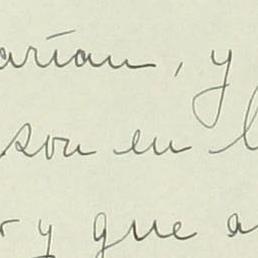 arían, y
son en l
r y que a